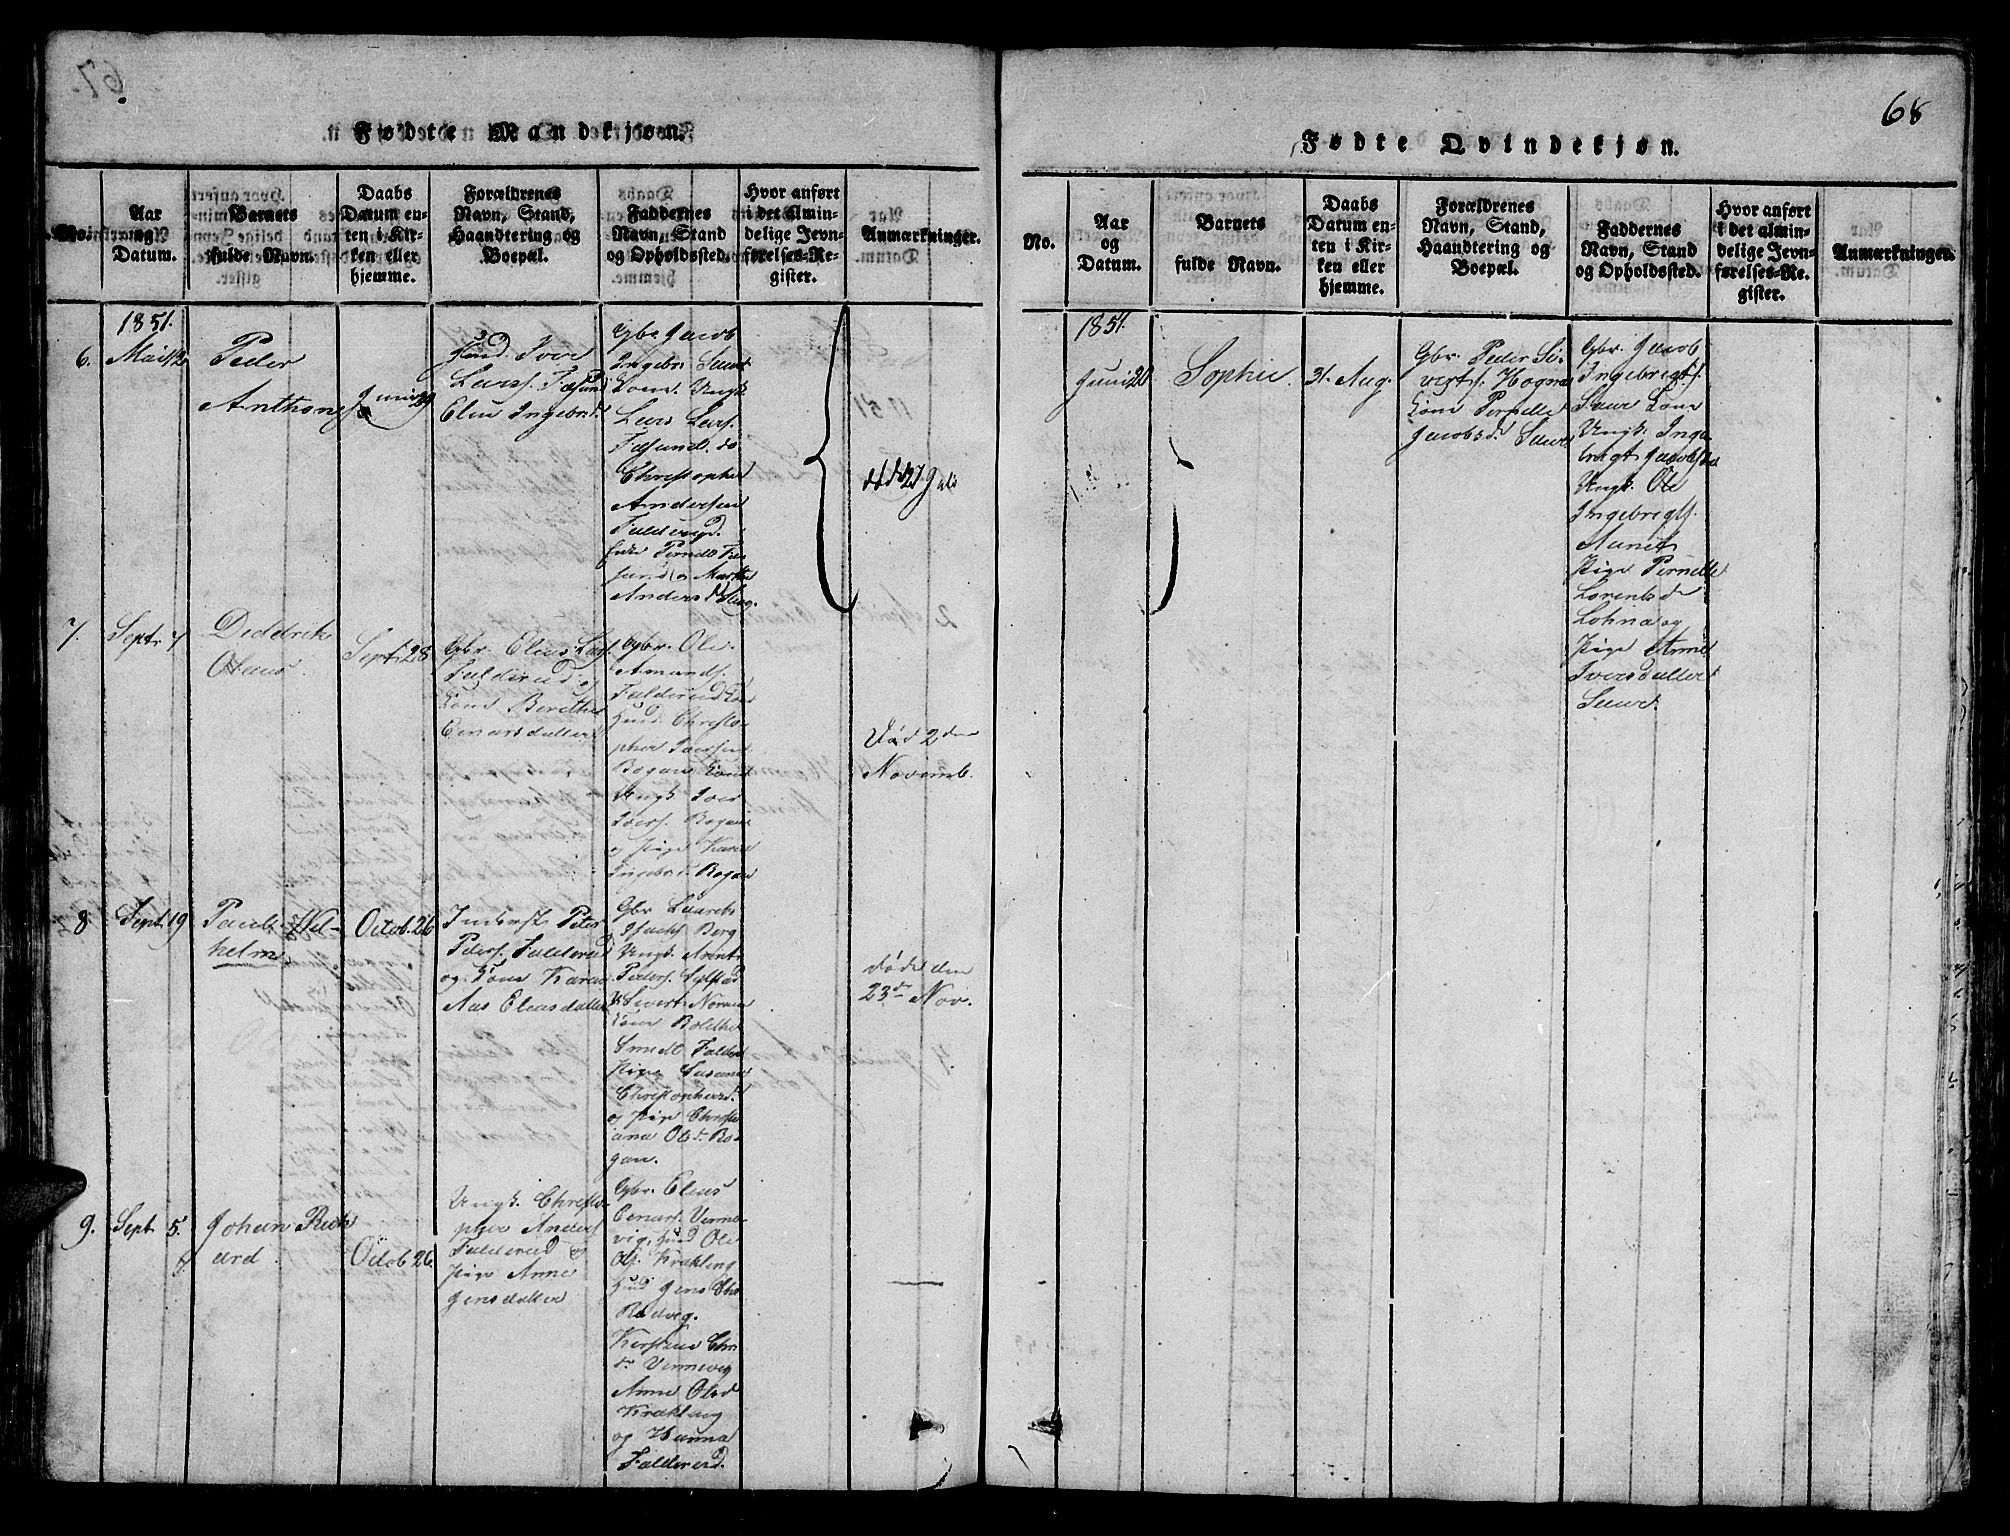 68
Fødte Mandkjøn.
No.
Aar
og
Datum.
Barnets
fulde Navn.
Daabs
Datum en-
ten i Kir-
ken eller
hjemme.
Forældrenes
Navn, Stand,
Haandtering og
Boepæl.
Faddernes
Navn, Stand
og Opholdssted.
Hvor anført
i det almin-
delige Jevn-
førelses-Re-
gister.
Anmærkninger.
1851.
6.
Mai 12
Peder
Anthon
Juni 29
Huusd. Iver
Larss.
Elen Ingebrd.
Gbr. Jacob
Ingebr. Saur
Kone. Ungk.
Lars Larss.
Christopher
Andersen
Falderud.
Anders d. Berg.
død 27 Juli
7.
Sept. 7
Dedderik
Olaus
Sept. 28
Gbr. Elias Lars.
Falderud og
Kone Berethe
Enarsdatter
Gbr. Ole
Amunds.
Falderud Kone
Huusd. Christo-
pher Iversen
Bogan Kone
Ungk. Iver
Ivers. Bogan
og Pige Karen
Ingebr d. Bogan
Død 2den
Novemb.
8.
Sept. 19
Paul Wil-
helm
Octob. 26
Inderst Peter
Peders. Falderud
og Kone Karen
Aas Eliasdatter
Gbr. Laurits
Isachs. Berg
Ungk. Arent
Peders.
Sivert
Kone Bolethe
Smedt Falderud
Pige Susanna
Christopherd.
og Pige Christi-
ana Ols d. Bo-
gan.
Døde den
23de Nov.
9.
Sept. 5.
Johan Rich-
ard.
Octob. 26.
Ungk. Christo-
pher Anders.
Falderud og
Pige Anne
Jensdatter
Gbr. Elias
Enars. Verme-
vig, Huusd Ole
Ols. Krækling
Huusd Jens Chr.
Rødvig.
Kirstine Chr.
d. Vermevig
Anne Olsd
Krækling
og Hanna
Falderud.
Fødte Qvindekjøn.
No.
Aar
og
Datum.
Barnets
fulde Navn.
Daabs
Datum en-
ten i Kir-
ken eller
hjemme.
Forældrenes
Navn, Stand,
Haandtering og
Boepæl.
Faddernes
Navn, Stand
og Opholdssted.
Hvor anført
i det almin-
delige Jevn-
førelses-Re-
gister.
Anmærkninger.
1851.
Juni 20
Sophie.
31. Aug.
Gbr. Peder Si-
verts. Hognes
Kone Pernelle
Jacobsd. Saur
Gbr. Jacob
Ingebrigts.
Saur Kone
Ungk. Inge-
brigt Jacobs.
Ungk. Ole
Ingebrigts.
Pige Pernelle
Lorents d.
Lohna og
Pige Anne
Iversdatter
Saur.